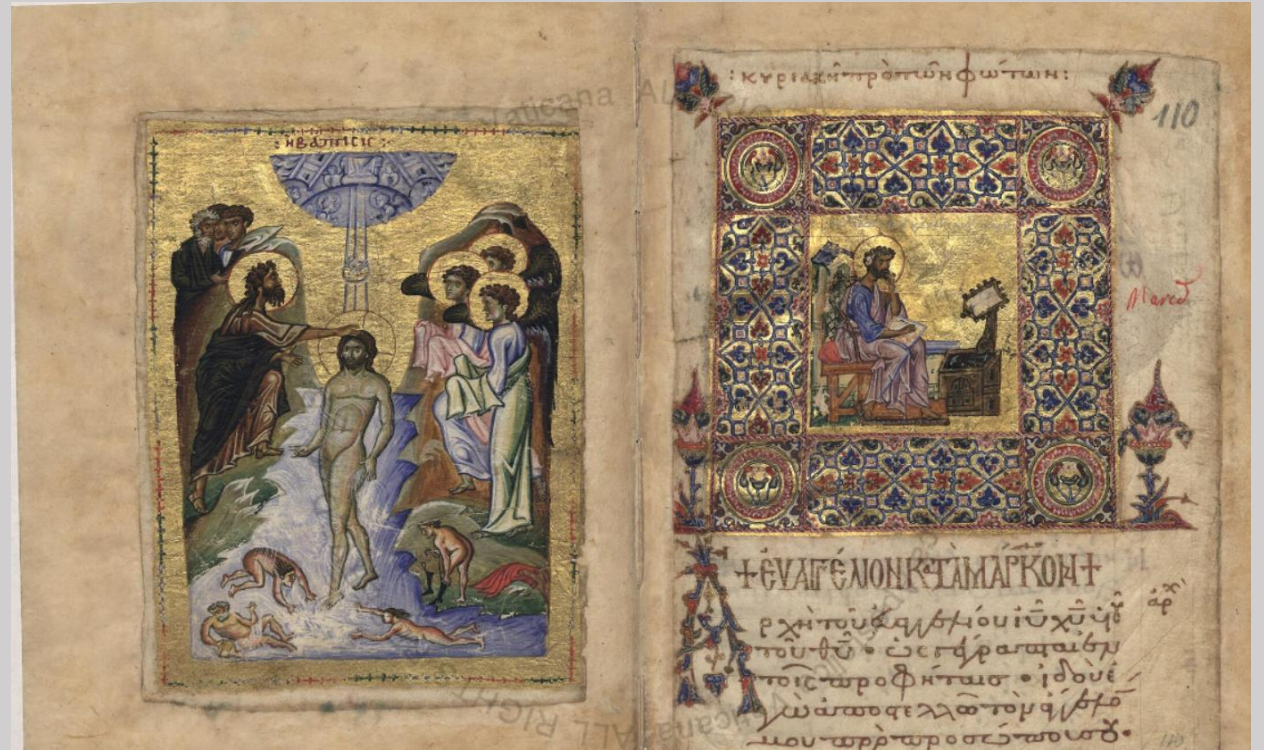 : Η ΒΑΠΤΙCΙC :
: κυριακῆ πρὸ τῶν φώτων :
110
+ ΕΥΑΓΓΕΛΙΟΝ Κ ΤΑ ΜΑΡΚΟΝ +
Αρχὴ τοῦ εὐαγγελίου ἰῦ χῦ υἱοῦ
τοῦ θῦ · ὡς γέγραπται ἐν
τοῖς προφήταις · ἰδοὺ ἐ
γὼ ἀποστέλλω τὸν ἄγγελό
μου πρὸ προσώπου σου ·
Vaticana
ALL RIGHT